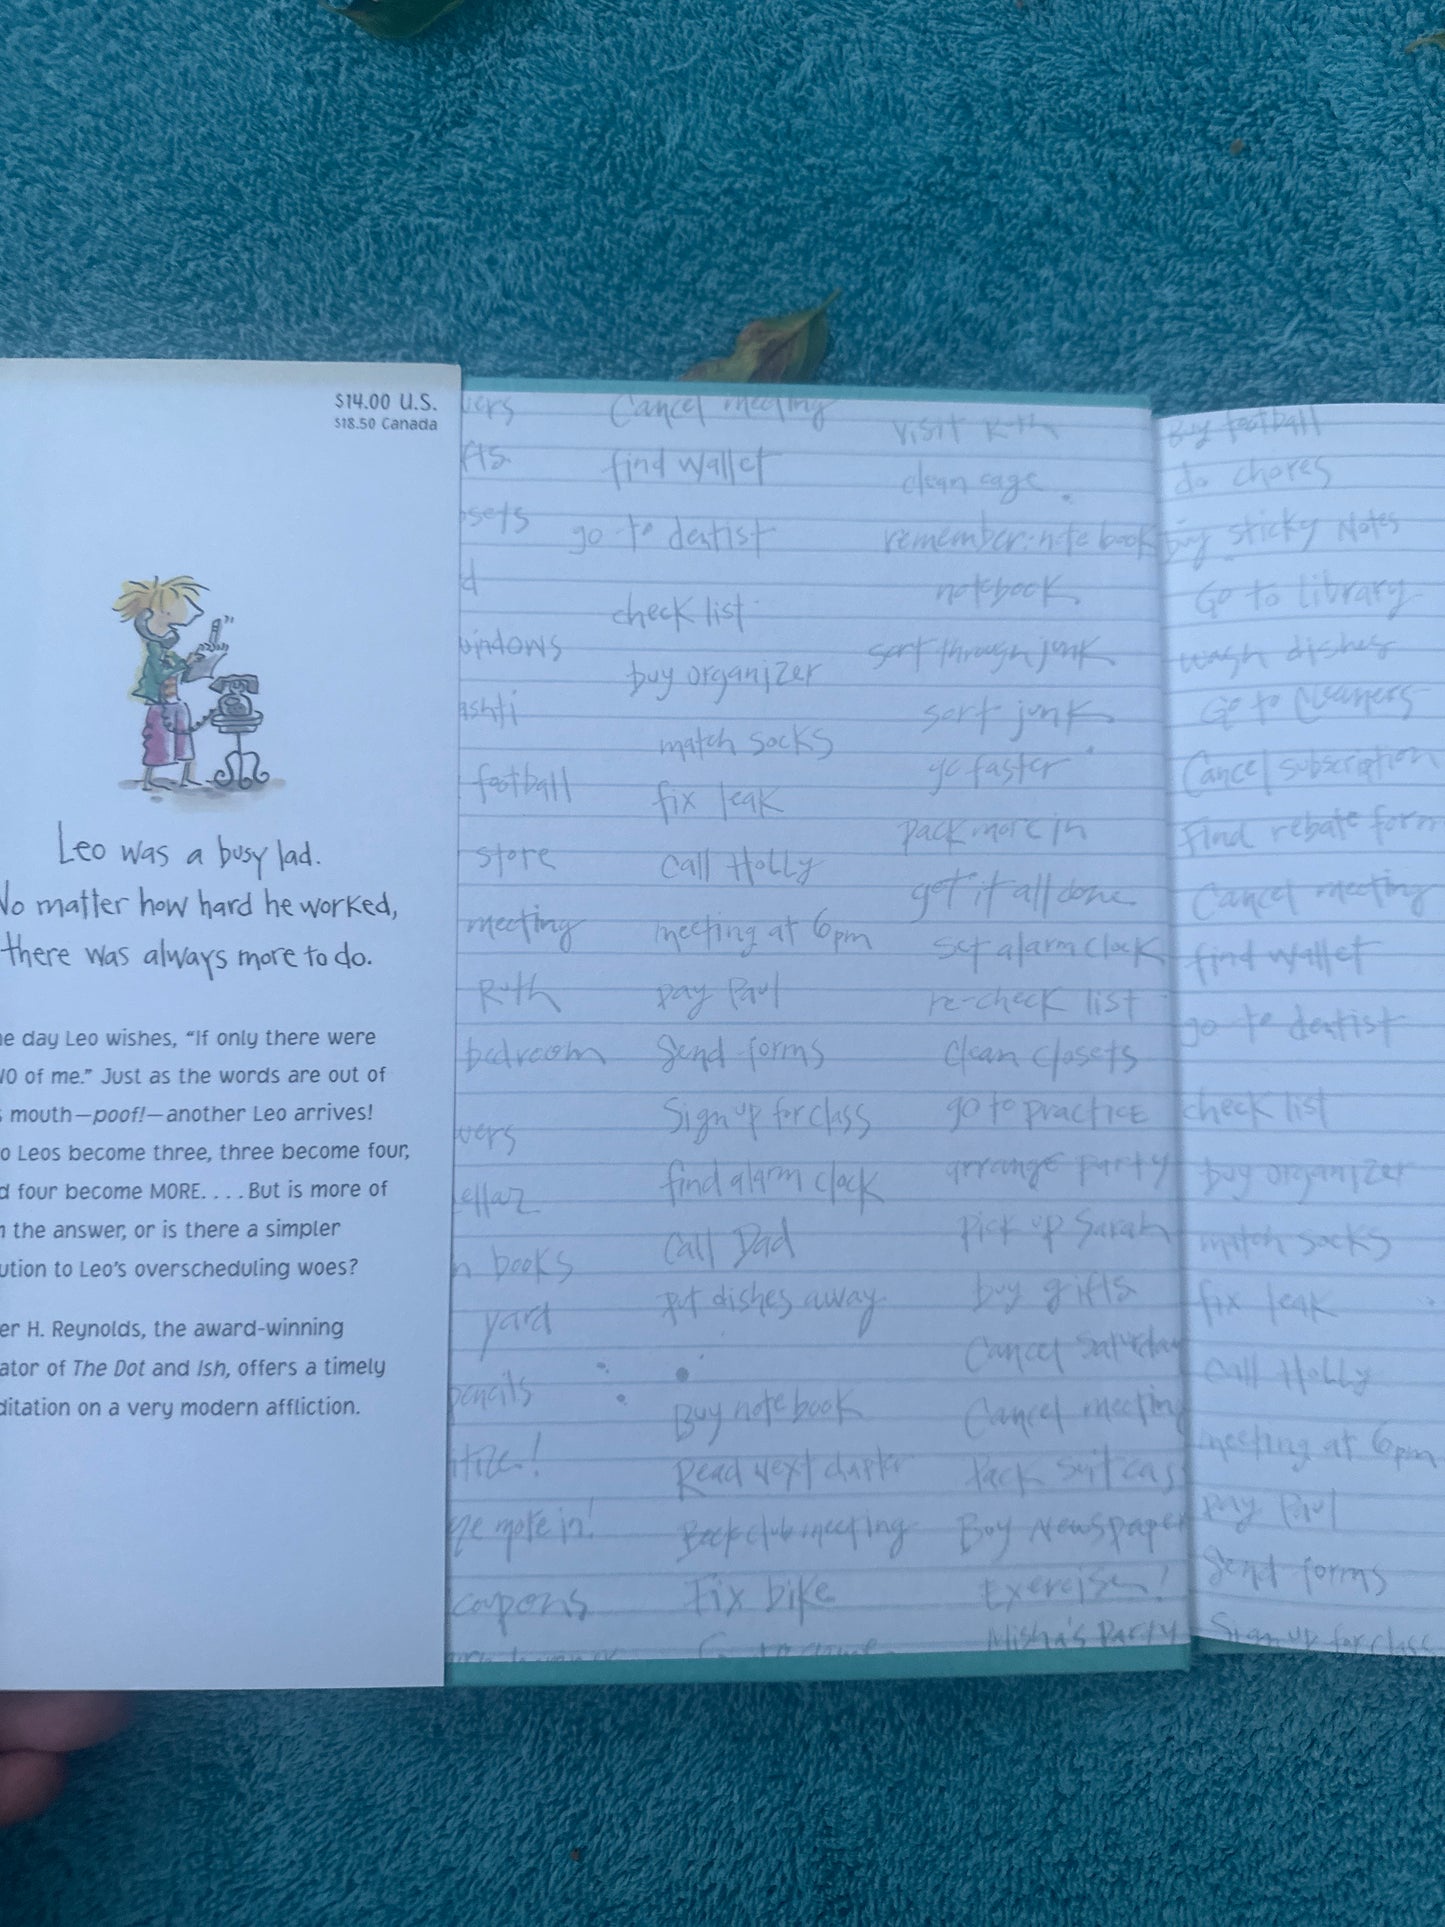 $14.00 U.S.
$18.50 Canada
Leo was a busy lad.
No matter how hard he worked,
there was always more to do.
e day Leo wishes, “If only there were
WO of me.” Just as the words are out of
s mouth—poof!—another Leo arrives!
o Leos become three, three become four,
d four become MORE. . . . But is more of
the answer, or is there a simpler
ution to Leo’s overscheduling woes?
er H. Reynolds, the award-winning
ator of The Dot and Ish, offers a timely
ditation on a very modern affliction.
vers
fts
osets
d
windows
ashti
football
store
meeting
Ruth
bedroom
wers
cellar
n books
yard
pencils
itize!
more in!
coupons
Cancel meeting
find wallet
go to dentist
check list
buy organizer
match socks
fix leak
Call Holly
meeting at 6pm
pay Paul
Send forms
Sign up for class
find alarm clock
Call Dad
put dishes away
Buy notebook
Read next chapter
Book club meeting
Fix bike
visit Ruth
clean cage
remember: note book
notebook
sort through junk
sort junk
go faster
pack more in
get it all done
set alarm clock
re-check list
Clean closets
go to practice
arrange party
pick up Sarah
buy gifts
Cancel Saturday
Cancel meeting
Pack suitcas
Buy Newspaper
Exercise!
Misha's Party
Buy football
do chores
Buy sticky Notes
Go to library
wash dishes
Go to Cleaners
Cancel subscription
Find rebate form
Cancel meeting
find wallet
go to dentist
check list
buy organizer
match socks
fix leak
Call Holly
meeting at 6pm
pay Paul
Send forms
Sign up for class